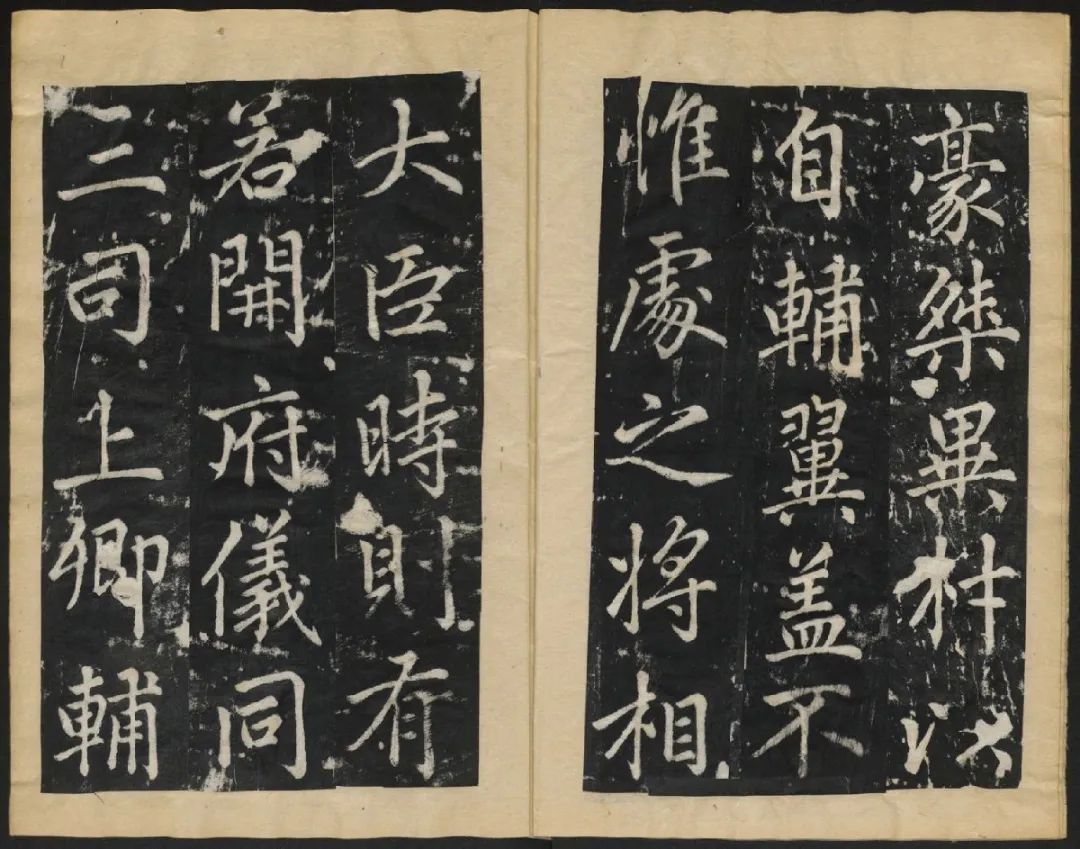 豪桀畢材以
自輔翼盖不
惟處之將相
大臣時則有
若開府儀同
三司上卿輔